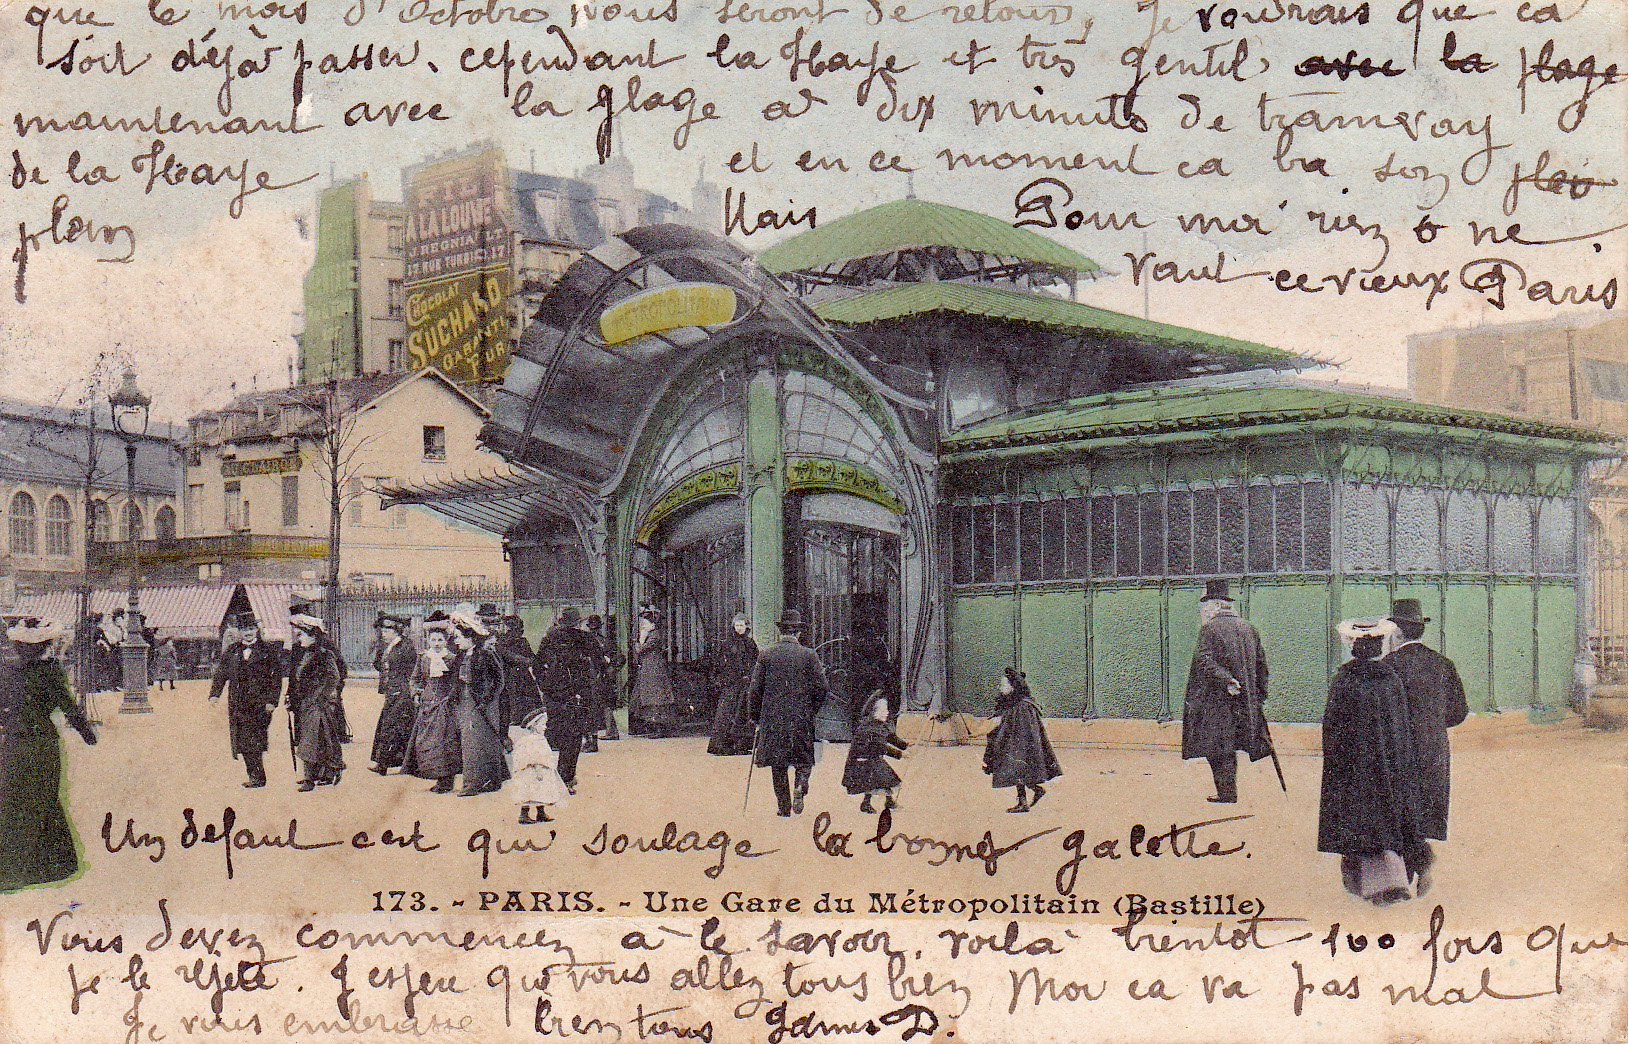 que le mois d'Octobre nous seront de retour, je voudrais que ca
soit déjà passer, cependant la Haye et très gentil, avec la plage
maintenant avec la plage à dix minuts de tramvay
de la Haye et en ce moment ca ba son plei
plein Mais Pour moi riez ne
vaut ce vieux Paris
A LA LOUVE
CHOCOLAT
SUCHARD
GARANTI
PUR
METROPOLITAIN
Un défaut c'est qui soulage la bonne galette.
173. - PARIS. - Une Gare du Métropolitain (Bastille)
Vous devez commencez à le savoir, voilà bientôt 100 fois que
je le rejete. J'espère que vous allez tous bien Moi ca va pas mal
Je vous embrasse bien tous James D.